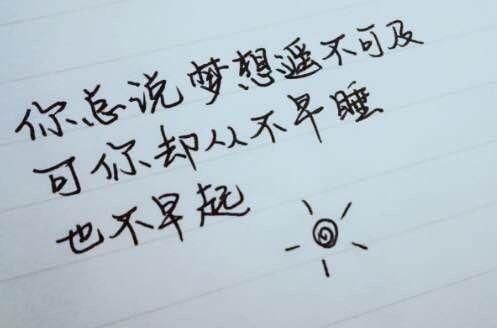 你总说梦想遥不可及
可你却从不早睡
也不早起